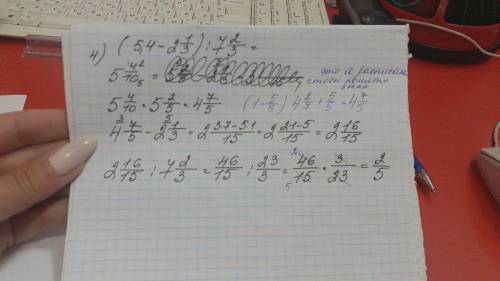 4) (5,4 - 2 1/3) : 7 2/3 =
5 4²/10₅ =
что я расписала
чтоб понятно
было
5 4/10 = 5 2/5 = 4 7/5 (1 = 5/5) 4 2/5 + 5/5 = 4 7/5
4 ³7/5 - 2 ⁵1/3 = 2 3·7-5·1/15 = 2 21-5/15 = 2 16/15
2 16/15 : 7 2/3 = 46/15 : 23/3 = ²46/15₅ · 3/23 = 2/5